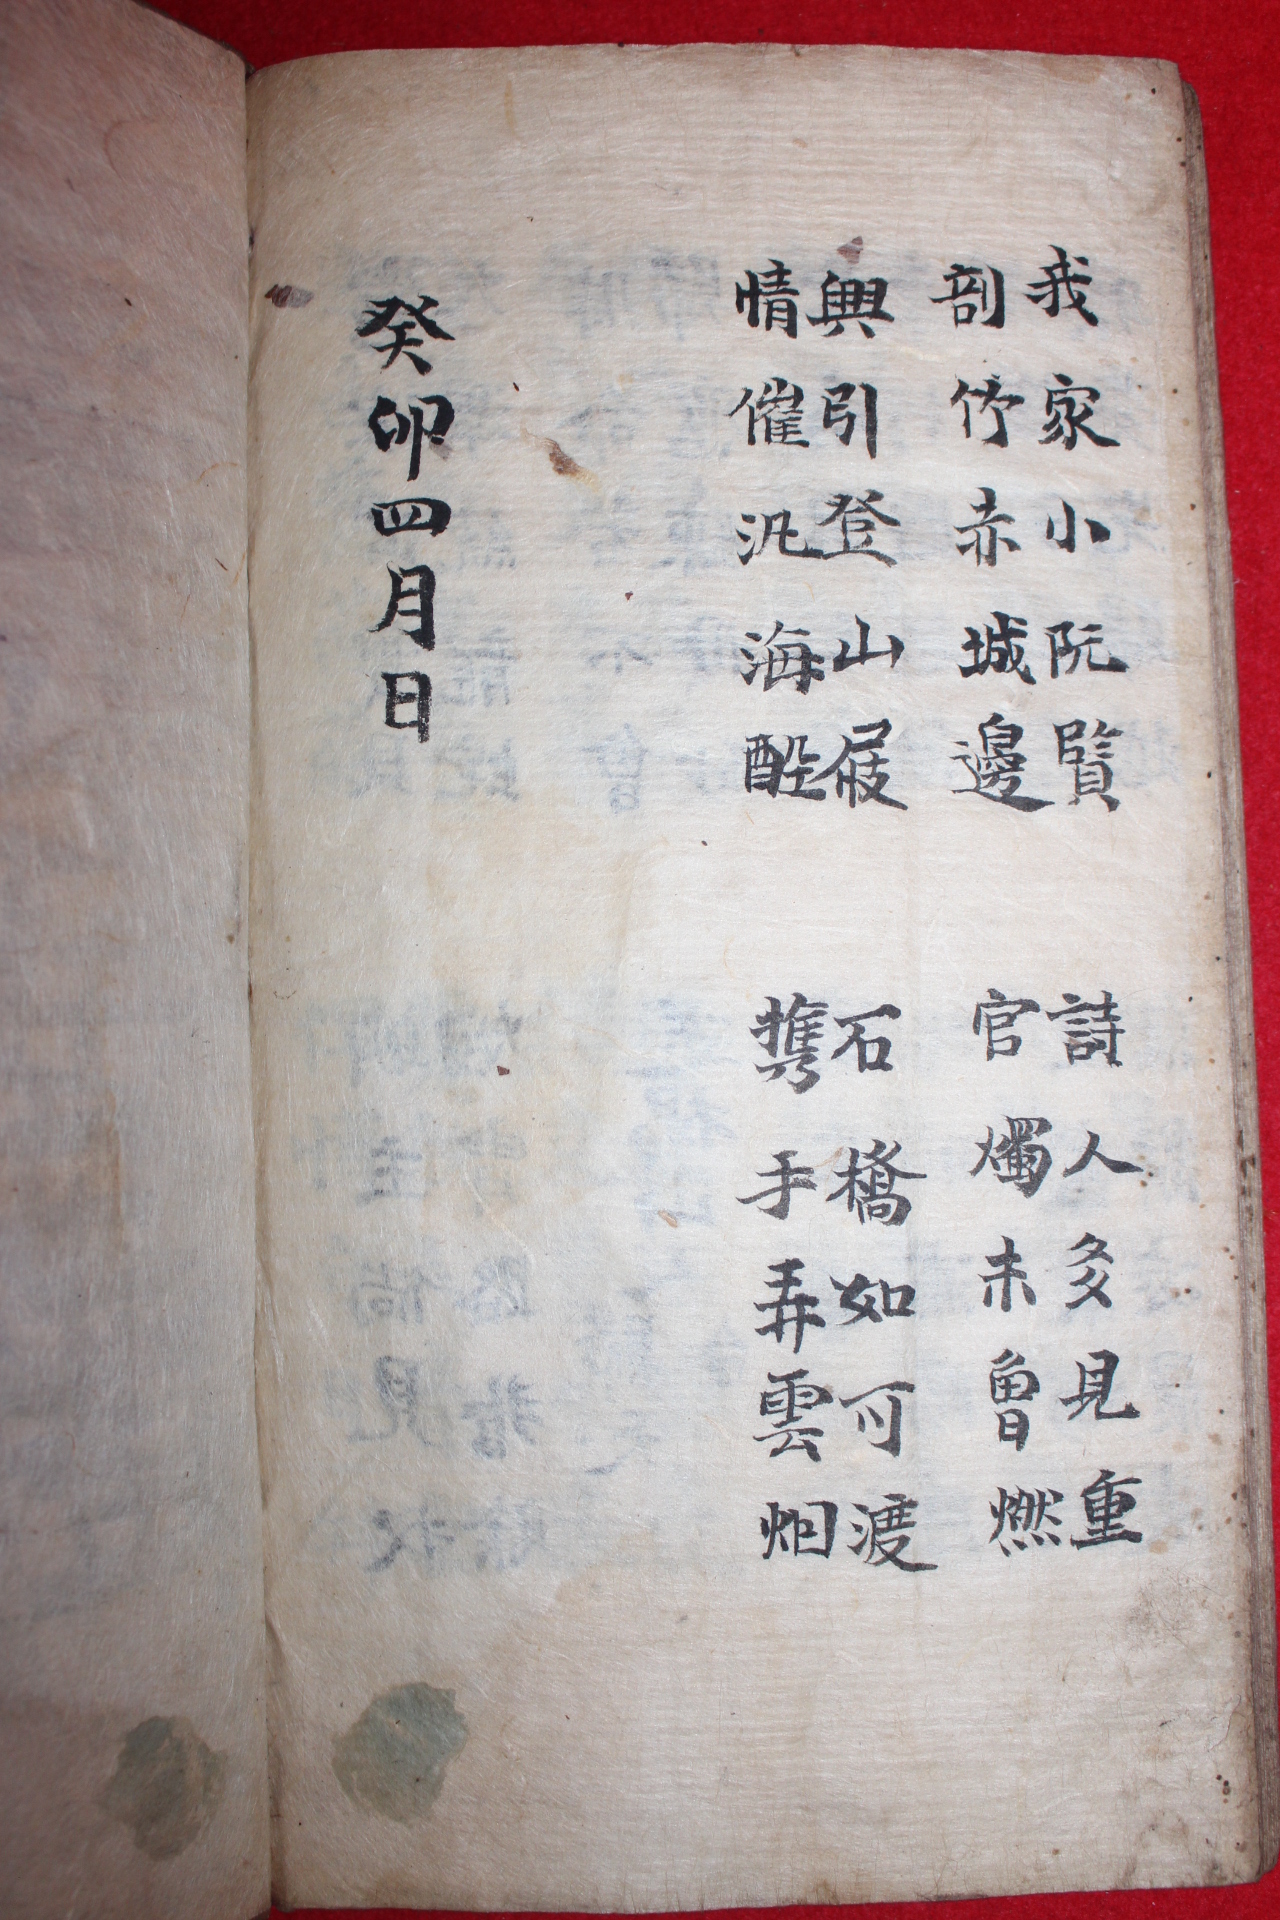 我家小阮賢
剖竹赤城邊
詩人多見重
官燭未曾燃
興引登山屐
情催汎海船
石橋如可渡
携手弄雲烟
癸卯四月日